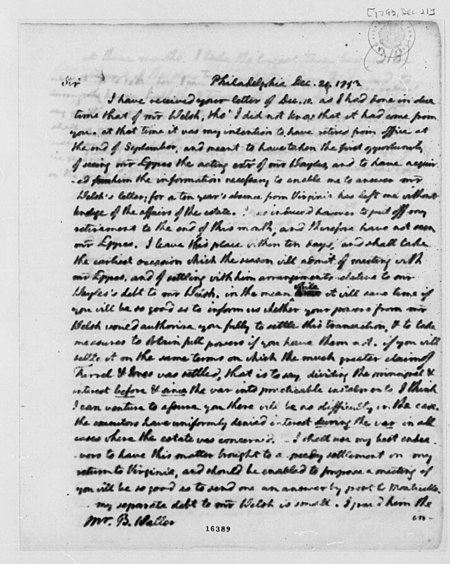 [1793, Dec. 21]
Sir Philadelphia Dec. 1793
I have received your letter of Dec. 10. as I had done in due
time that of mr Welsh, tho' I did not know that it had come from
you. at that time it was my intention to have retired from office at
the end of September, and meant to have taken the first opportunity
of seeing mr Eppes the acting exr of mr Wayles, and to have acquir-
ed from him the information necessary to enable me to answer mr
Welsh's letter; for a ten year's absence from Virginia has left me without
knolege of the affairs of the estate. I was induced however to put off my
retirement to the end of this month, and therefore have not seen
mr Eppes. I leave this place within ten days, and shall take
the earliest occasion which the season will admit of meeting with
mr Eppes, and of settling with him arrangements relative to mr
Wayles's debt to mr Welsh. in the mean while it will save time if
you will be so good as to inform us whether your powers from mr
Welsh would authorize you fully to settle this transaction, & to take
measures to obtain full powers if you have them not. if you will
settle it on the same terms on which the much greater claim of
Farrel & Jones was settled, that is to say, dividing the principal &
interest before & since the war into practicable instalments I think
I can venture to assure you there will be no difficulty in the case.
the executors have uniformly denied interest during the war in all
cases where the estate was concern'd. I shall use my best endea-
vors to have this matter brought to a speedy settlement on my
return to Virginia, and should be enabled to propose a meeting if
you will be so good as to send me an answer by post to Monticello.
my separate debt to mr Welsh is small. I pray'd him the
mr. B. Waller in-
16389